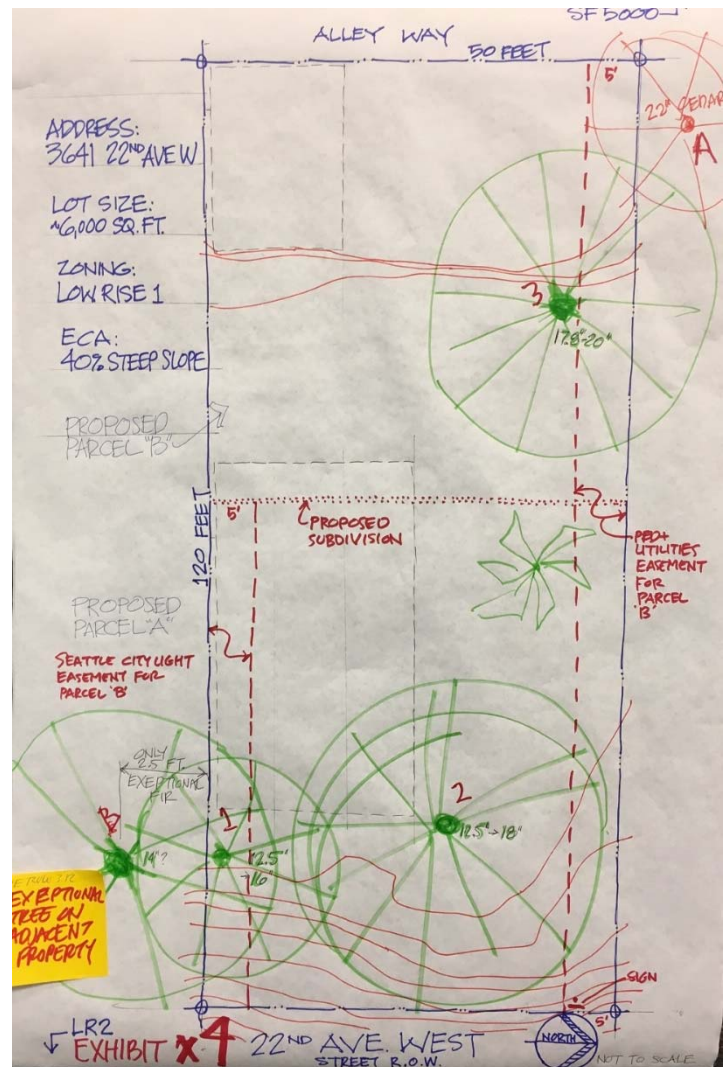 SF 5000
ALLEY WAY
50 FEET
5'
22" CEDAR
A
ADDRESS:
3641 22ND AVE W
LOT SIZE:
~6,000 SQ. FT.
ZONING:
LOW RISE 1
ECA:
40% STEEP SLOPE
3
17.8"-20"
PROPOSED
PARCEL "B"
120 FEET
5'
PROPOSED
SUBDIVISION
PED+
UTILITIES
EASEMENT
FOR
PARCEL
'B'
PROPOSED
PARCEL "A"
SEATTLE CITY LIGHT
EASEMENT FOR
PARCEL 'B'
ONLY
2.5 FT.
EXEPTIONAL
FIR
B
14"?
1
12.5"
-16"
2
12.5"→18"
EXEPTIONAL
TREE ON
ADJACENT
PROPERTY
SIGN
5'
LR2
EXHIBIT x4
22ND AVE. WEST
STREET R.O.W.
NORTH
NOT TO SCALE